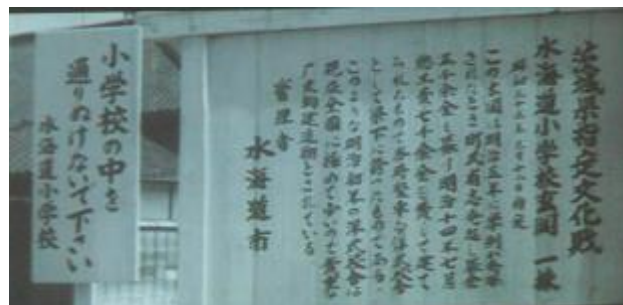 茨城県指定文化財
水海道小学校玄関 一棟
昭和三十三年三月十二日指定
この玄関は明治五年に学制が発布
されたとき町民有志が
千余金を募り明治十四年七月
総工費七千余金を費して建て
られたもので
として県下に誇ったものである
このような明治初年の洋式校舎は
現在全国に極めて少いので貴重な
歴史的建造物とされている
管理者
水海道市
小学校の中を
通りぬけないで下さい
水海道小学校